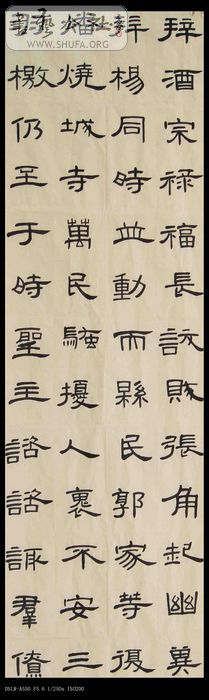 拜酒宗祿福長訞賊張角起幽冀
楊同時並動而縣民郭家等復
燔燒城寺萬民騷擾人裹不安三
檄仍至于時聖主諮諮諏羣僚
WWW.SHUFA.ORG
DSLR-A550 F5.6 1/250s ISO200